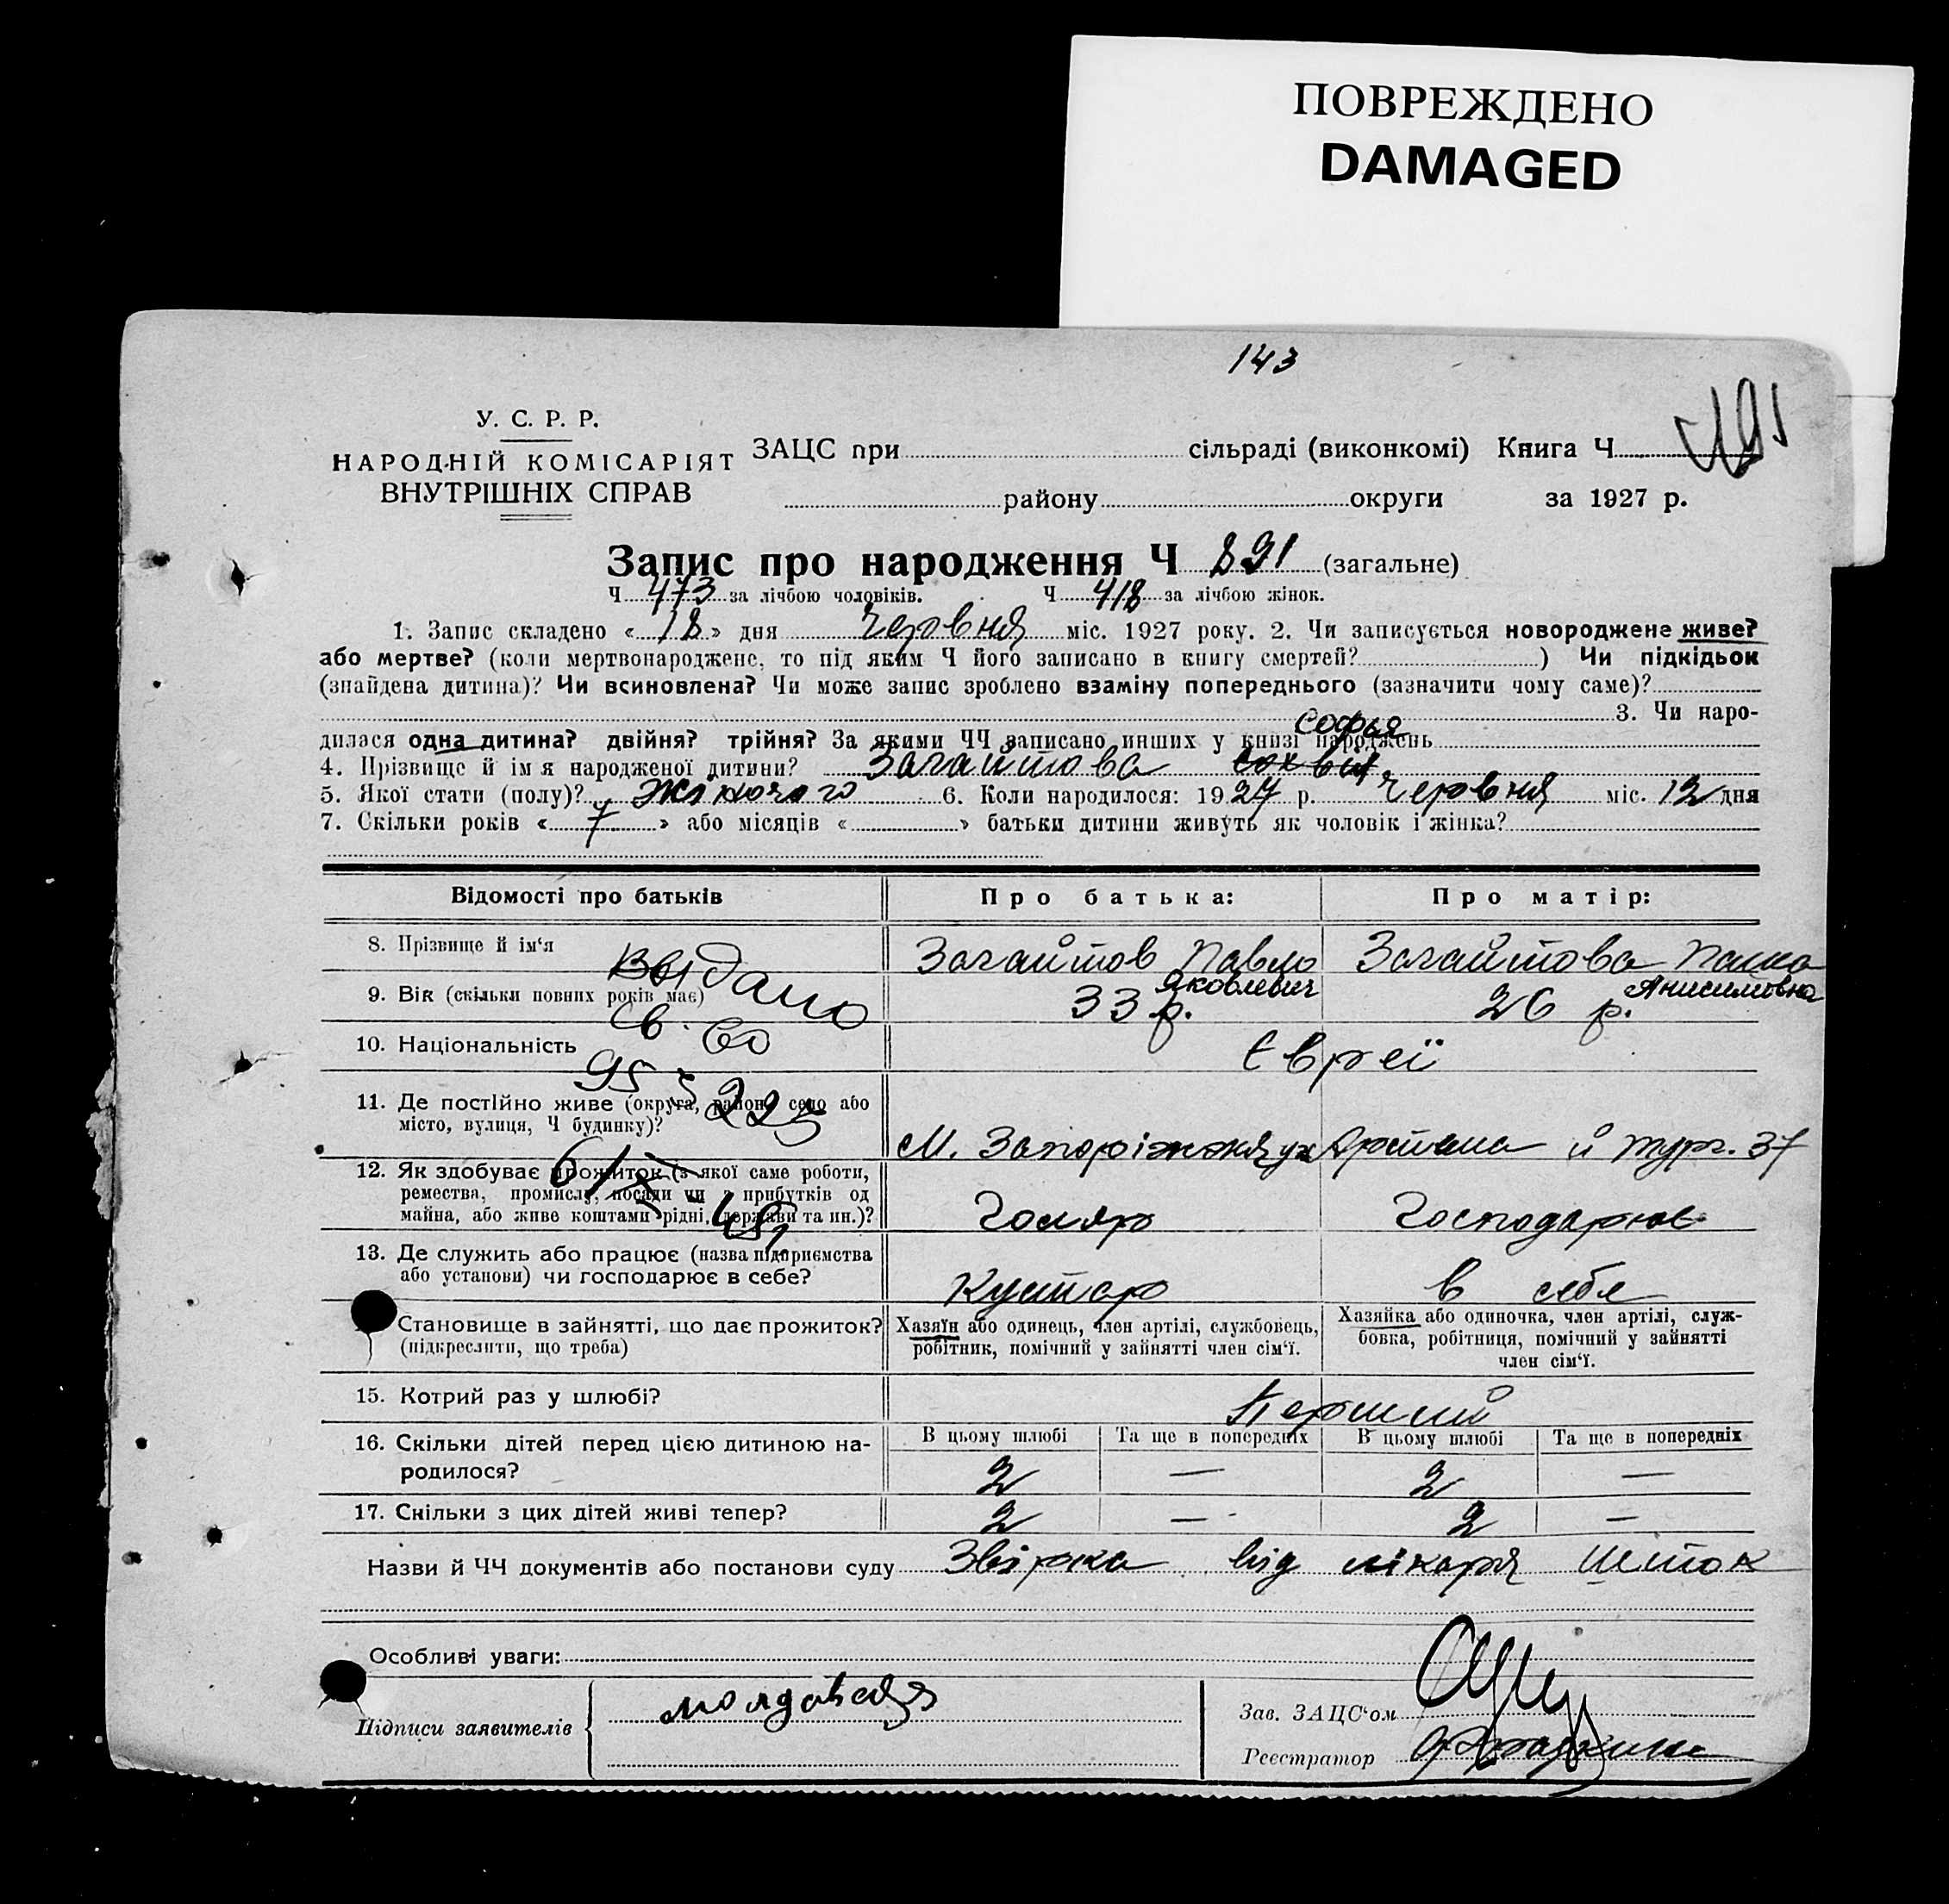 ПОВРЕЖДЕНО
DAMAGED
143
У. С. Р. Р.
НАРОДНІЙ КОМІСАРІЯТ
ВНУТРІШНІХ СПРАВ
ЗАЦС при сільраді (виконкомі) Книга Ч
району округи за 1927 р.
Запис про народження Ч 891 (загальне)
Ч 473 за лічбою чоловіків. Ч 418 за лічбою жінок.
1. Запис складено « 18 » дня Червня міс. 1927 року. 2. Чи записується новороджене живе?
або мертве? (коли мертвонароджене, то під яким Ч його записано в книгу смертей? ) Чи підкідьок
(знайдена дитина)? Чи всиновлена? Чи може запис зроблено взаміну попереднього (зазначити чому саме)?
3. Чи наро-
дилася одна дитина? двійня? трійня? За якими ЧЧ записано инших у книзі народжень
Софья
4. Прізвище й ім я народженої дитини? Загайтова
5. Якої стати (полу)? Жіночого 6. Коли народилося: 1927 р. Червня міс. 12 дня
7. Скільки років « 7 » або місяців « » батьки дитини живуть як чоловік і жінка?
Відомості про батьків Про батька: Про матір:
8. Прізвище й ім‘я Загайтов Павло Загайтова
Яковлевич Анисимовна
9. Вік (скільки повних років має) 33 р. 26 р.
Выдано
св.
10. Національність Євреї
11. Де постійно живе (округа, район, село або
місто, вулиця, Ч будинку)?
М. Запоріжжя Артема й Тург. 37
12. Як здобуває прожиток (з якої саме роботи,
ремества, промислу, посади чи з прибутків од
майна, або живе коштами рідні, держави та ин.)?
Голяр Господарює
13. Де служить або працює (назва підприємства
або установи) чи господарює в себе?
Кустар в себе
Становище в зайнятті, що дає прожиток?
(підкреслити, що треба)
Хазяїн або одинець, член артілі, службовець,
робітник, помічний у зайнятті член сім‘ї.
Хазяйка або одиночка, член артілі, служ-
бовка, робітниця, помічний у зайнятті
член сім‘ї.
15. Котрий раз у шлюбі? Перший
16. Скільки дітей перед цією дитиною на-
родилося?
В цьому шлюбі Та ще в попередніх В цьому шлюбі Та ще в попередніх
2 — 2 —
17. Скільки з цих дітей живі тепер? 2 — 2 —
Назви й ЧЧ документів або постанови суду Звірка від лікаря Шток
Особливі уваги:
Підписи заявителів
Зав. ЗАЦС‘ом
Реєстратор